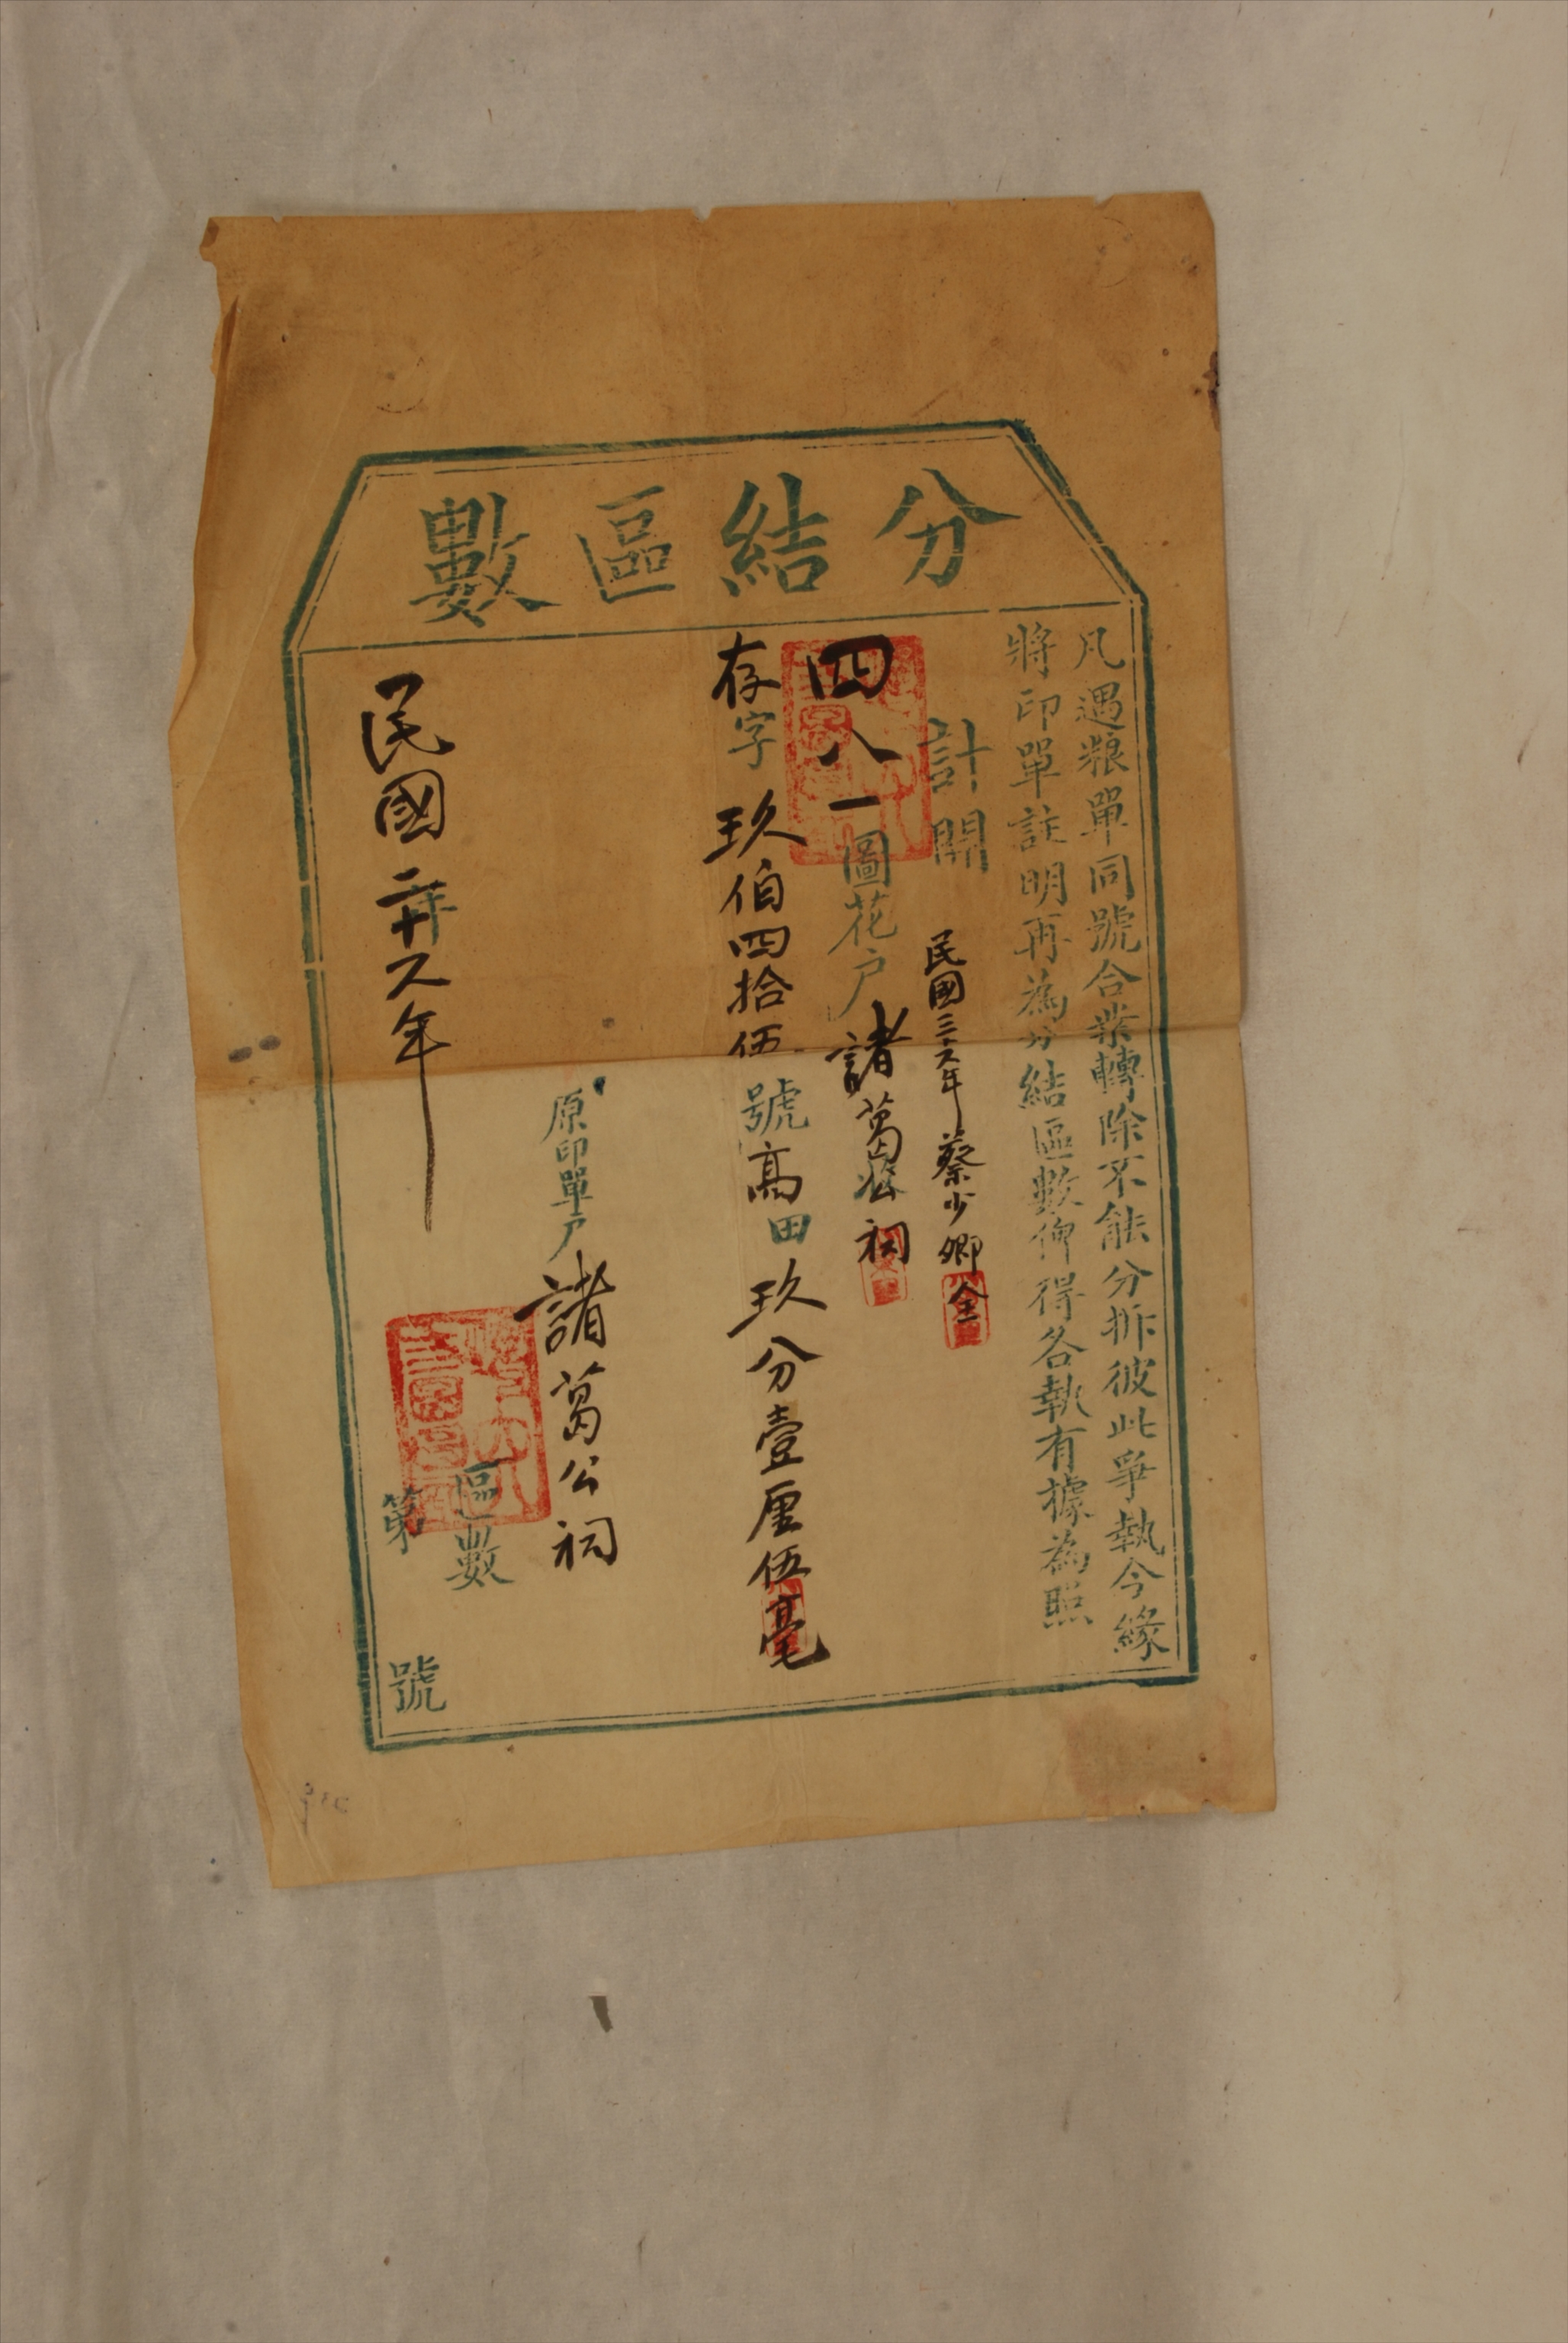 分結區數
凡遇粮單同號合業轉除不能分拆彼此爭執今緣
將印單註明再為分結區數俾得各執有據為照
計開
民國三十六年蔡少卿全
四八一圖花户諸葛公祠
存字玖伯四拾伍號高田玖分壹厘伍毫
原印單户諸葛公祠
區數
民國二十八年
第號